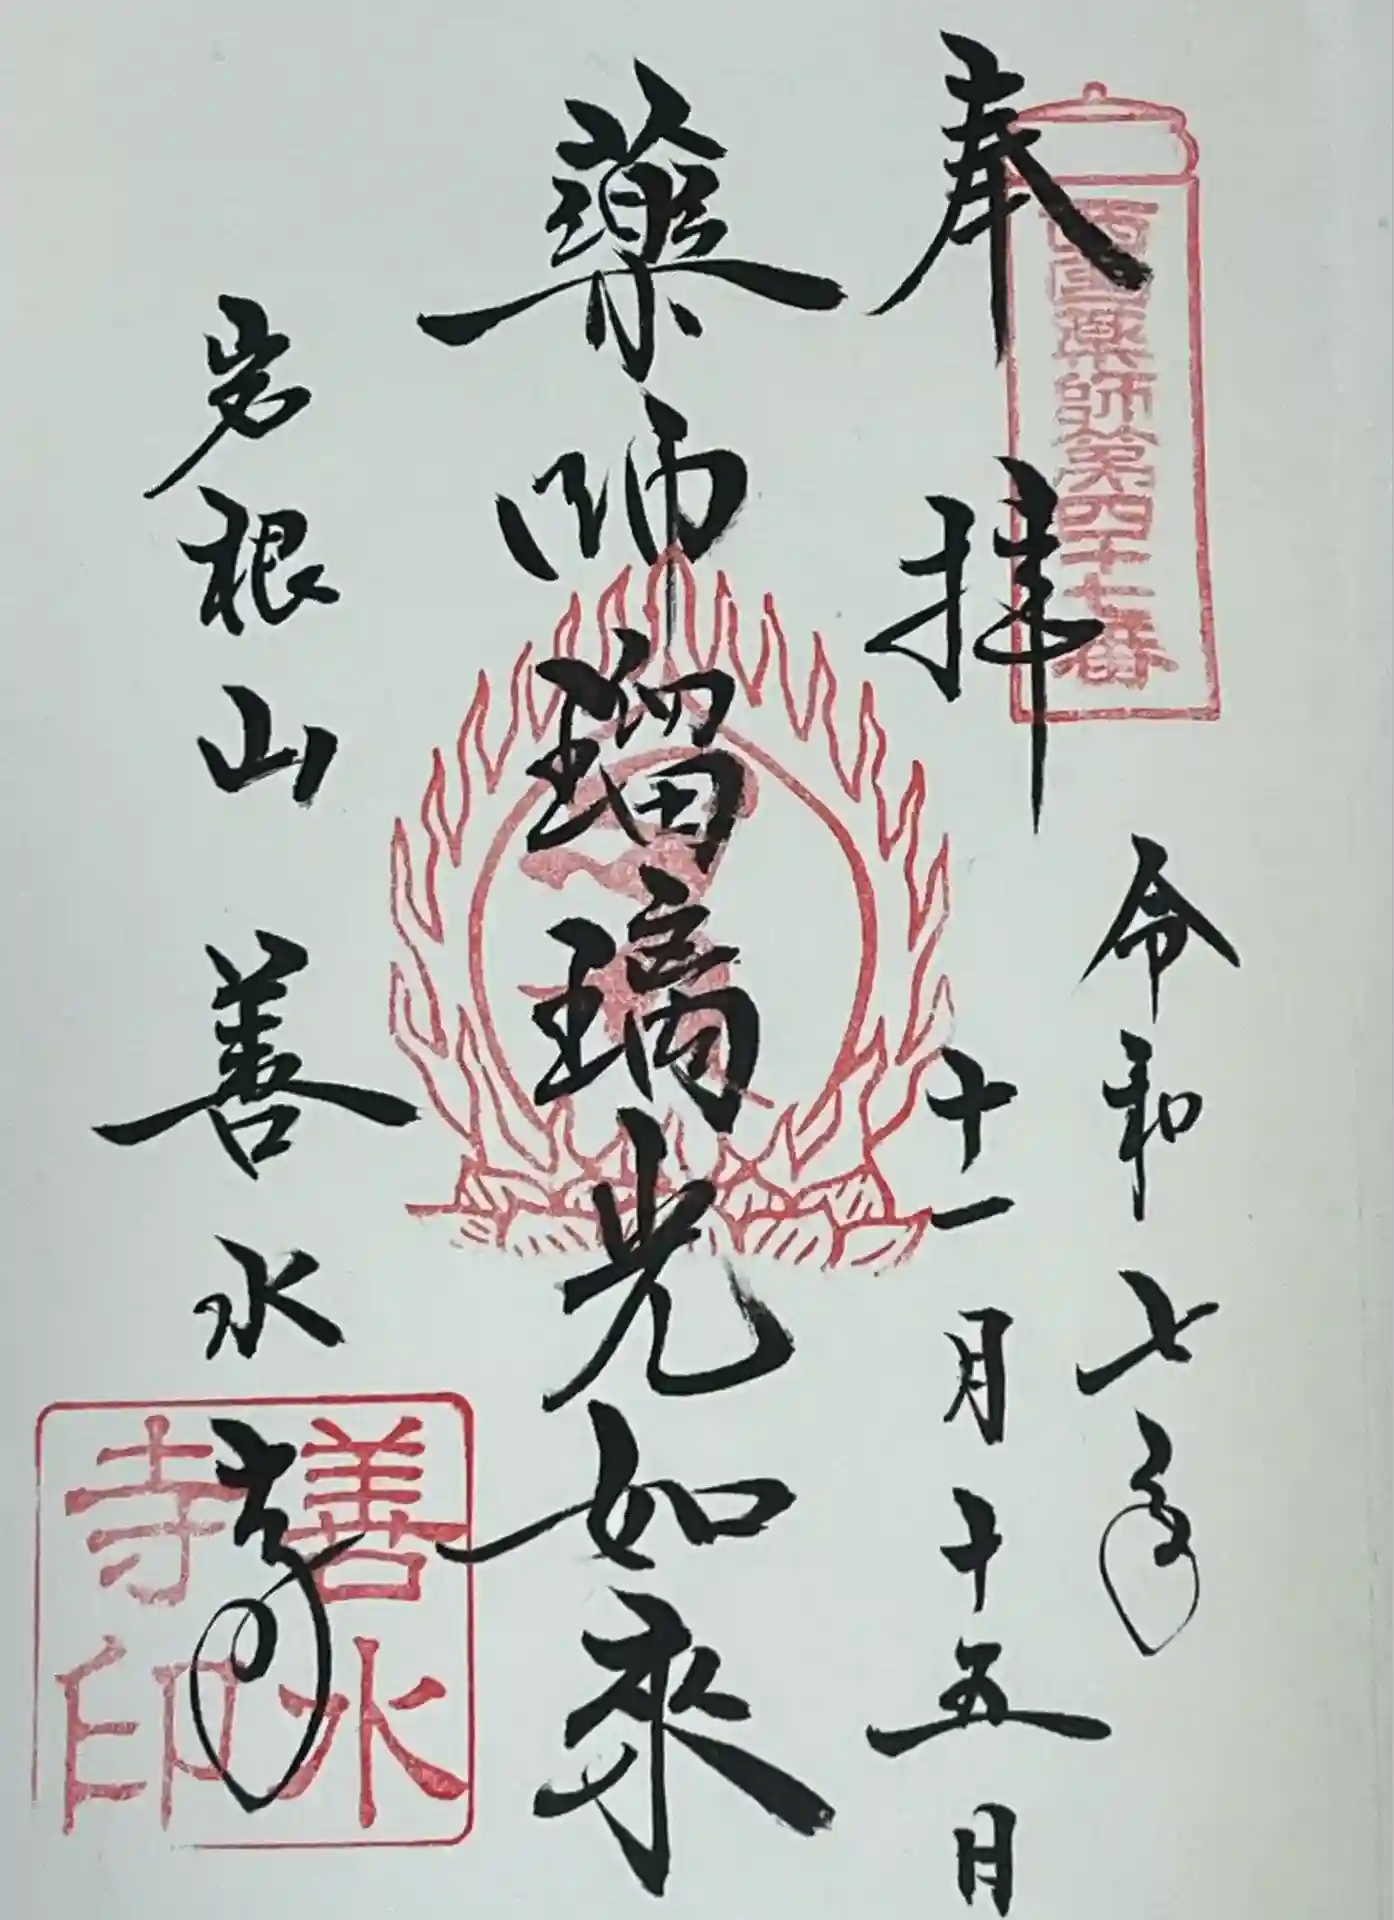 奉拝
西国薬師第四十七番
令和七年
十一月十五日
薬師瑠璃光如来
岩根山 善水寺
善水
寺印